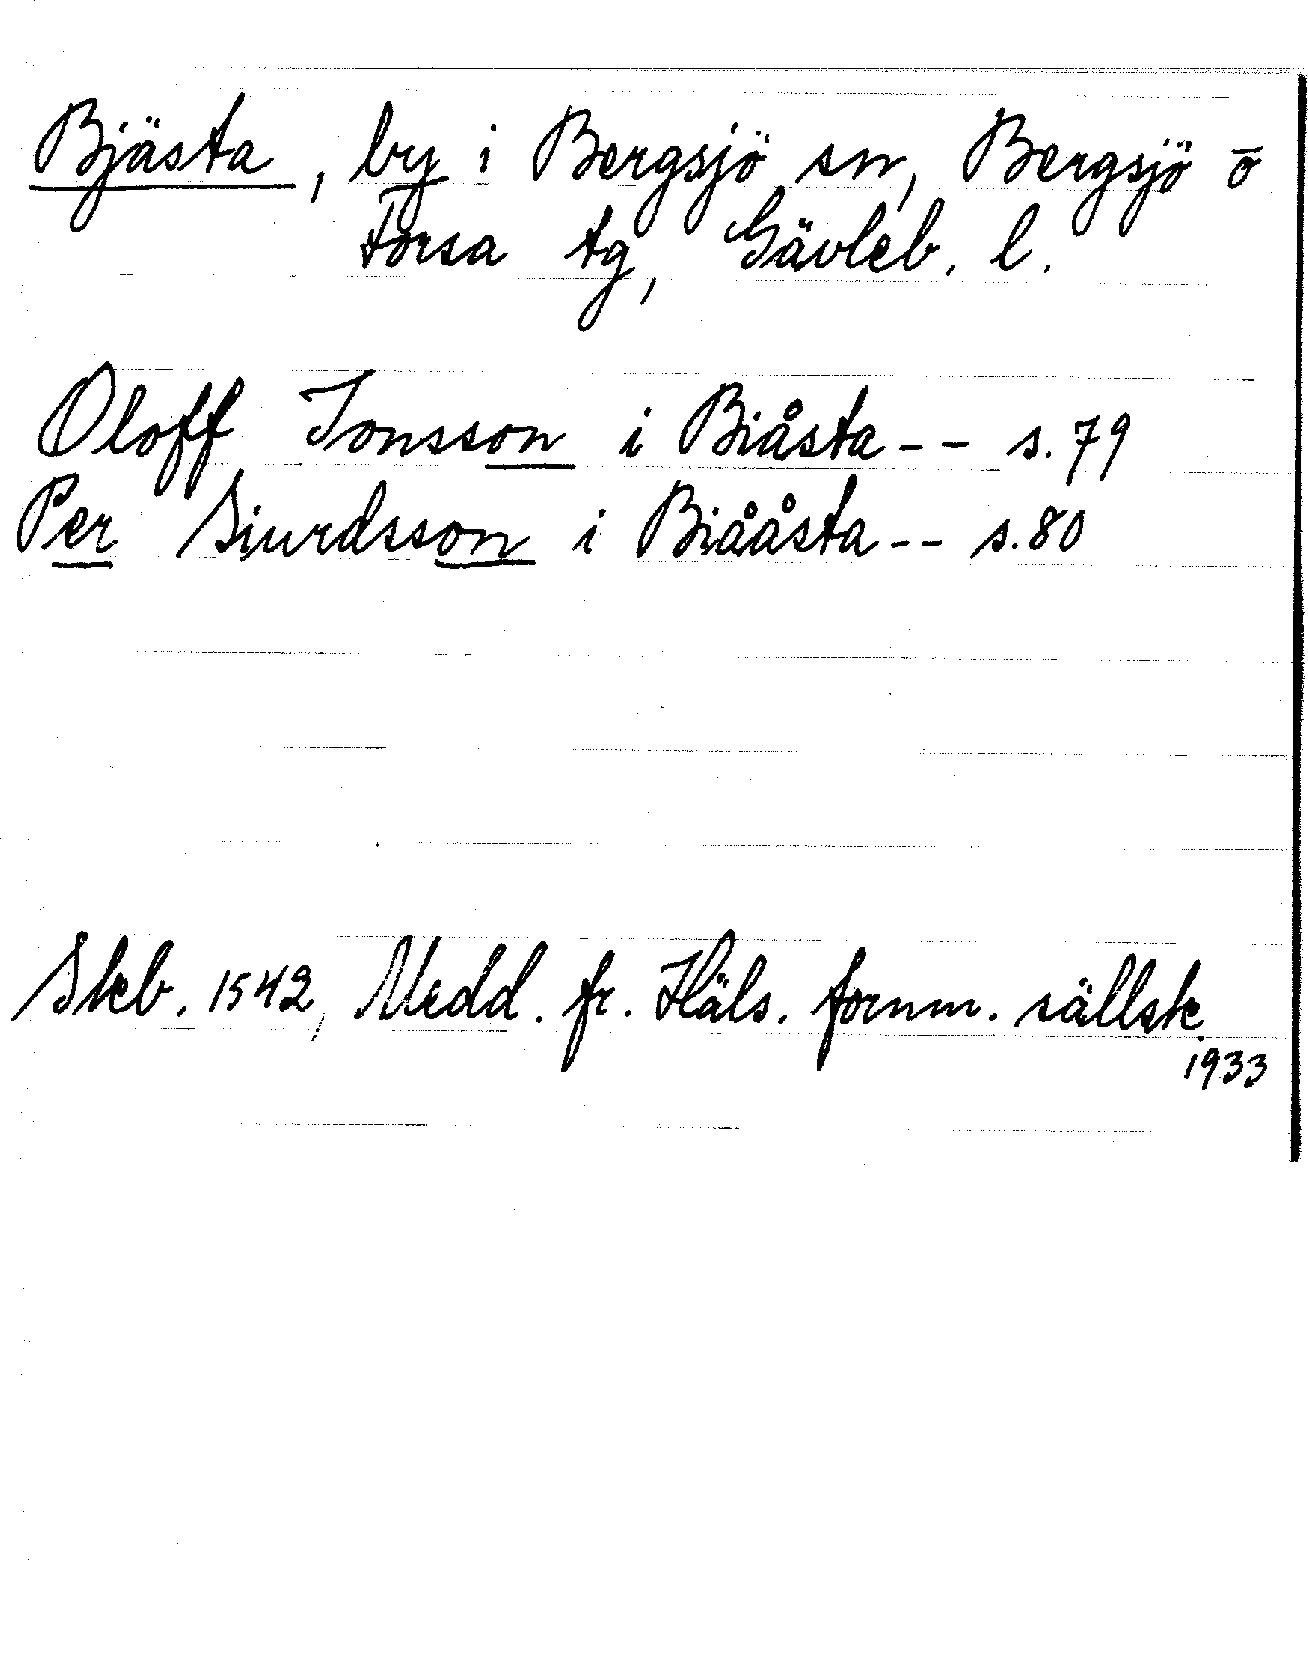 Bjästa, by i Bergsjö sn, Bergsjö o
Forsa tg, Gävleb. l.
Oloff Jonsson i Biåsta -- s. 79
Per Siurdsson i Biååsta -- s. 80
Skb. 1542, Medd. fr. Häls. fornm. sällsk.
1933